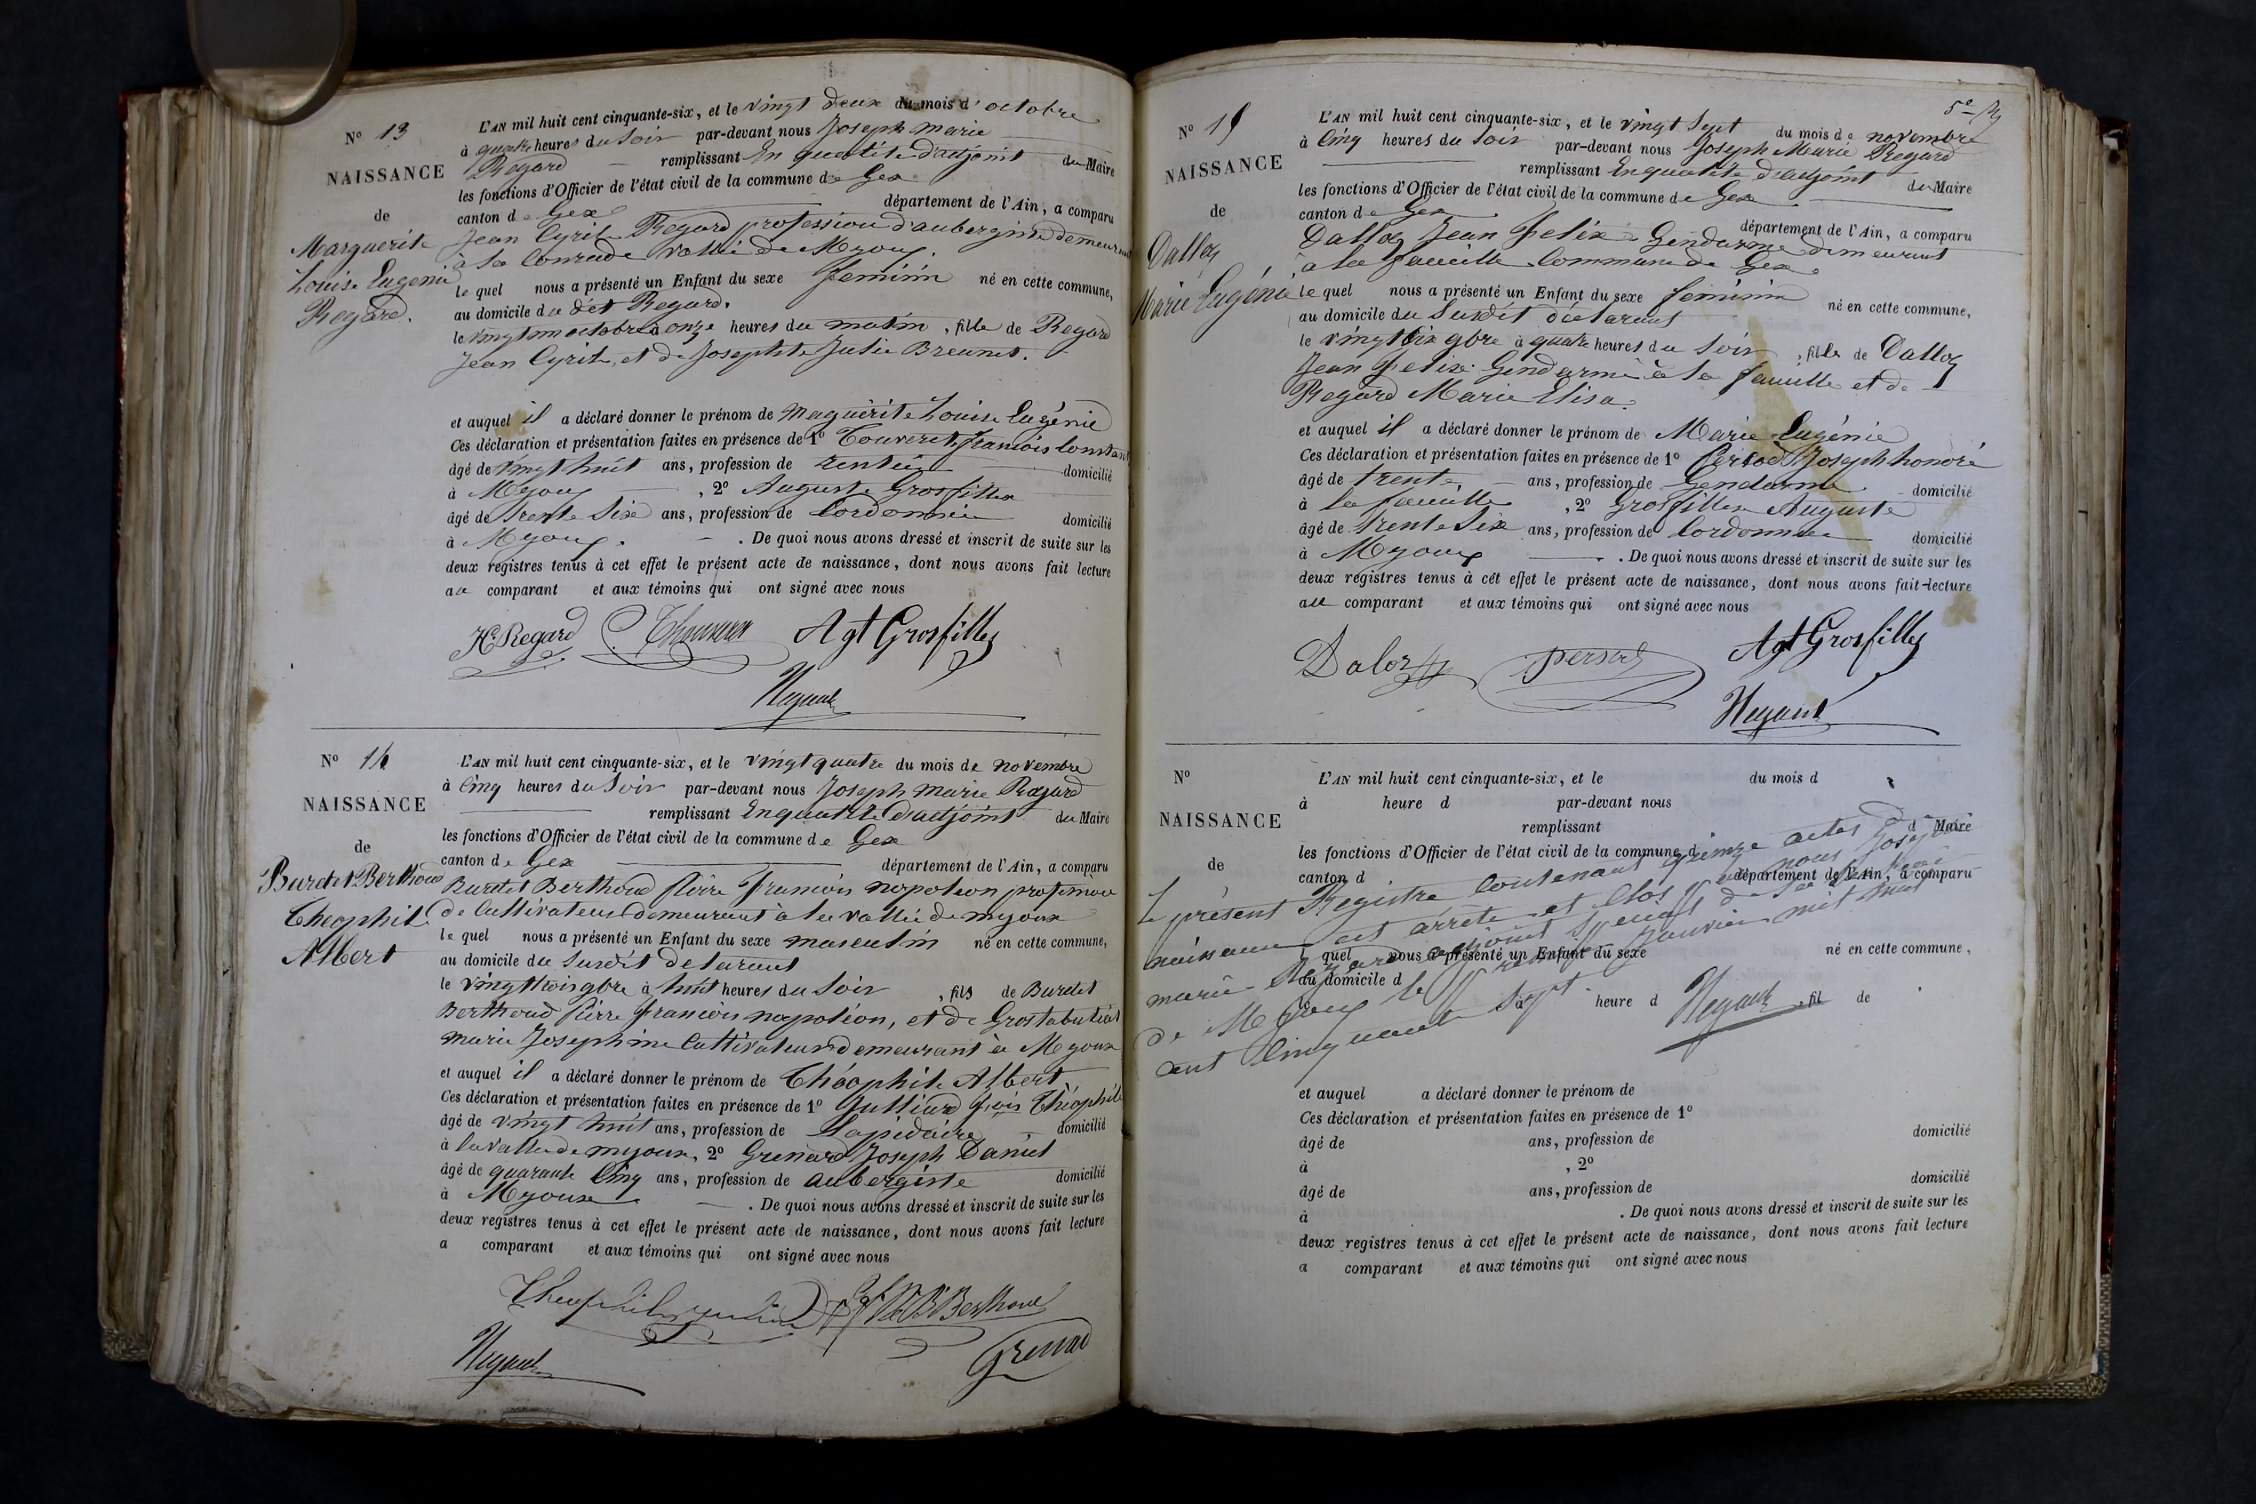 N° 13
NAISSANCE
de
Marguerite
Louise Eugénie
Regard.
L'AN mil huit cent cinquante-six, et le vingt deux du mois d'octobre
à quatre heures du Soir par-devant nous Joseph Marie
Regard remplissant En qualité d'adjoint du Maire
les fonctions d'Officier de l'état civil de la commune de Gex
canton de Gex département de l'Ain, a comparu
Jean Cyrile Regard profession d'aubergiste demeurant
à la vallée de Myoux.
le quel nous a présenté un Enfant du sexe feminin né en cette commune,
au domicile du dit Regard.
le vingt un octobre à onze heures du matin, fille de Regard
Jean Cyrile, et de Josephte Julie Brunet.
et auquel il a déclaré donner le prénom de Maguerite Louise Eugénie
Ces déclaration et présentation faites en présence de 1° Touveret françois Constant
âgé de vingt huit ans, profession de rentier domicilié
à Myoux, 2° Auguste Grosfilley
âgé de trente Six ans, profession de Cordonnier domicilié
à Myoux. De quoi nous avons dressé et inscrit de suite sur les
deux registres tenus à cet effet le présent acte de naissance, dont nous avons fait lecture
au comparant et aux témoins qui ont signé avec nous
Regard Agt Grosfilley
Regard
N° 14
NAISSANCE
de
Burdet Berthoud
Théophile
Albert
L'AN mil huit cent cinquante-six, et le vingt quatre du mois de novembre
à Cinq heures du Soir par-devant nous Joseph Marie Regard
remplissant En qualité d'adjoint du Maire
les fonctions d'Officier de l'état civil de la commune de Gex
canton de Gex département de l'Ain, a comparu
Burdet Berthoud Pierre François napoléon profession
de Cultivateur demeurant à la vallée de myoux
le quel nous a présenté un Enfant du sexe masculin né en cette commune,
au domicile du Susdit déclarant
le vingt trois 9bre à huit heures du Soir, fils de Burdet
Berthoud Pierre François napoléon, et de Grostabussiat
marie Josephine Cultivateurs demeurant à Myoux
et auquel il a déclaré donner le prénom de Théophile Albert
Ces déclaration et présentation faites en présence de 1° Julliard frois Théophile
âgé de vingt huit ans, profession de Lapidaire domicilié
à la vallée de myoux, 2° Grenard Joseph Daniel
âgé de quarante Cinq ans, profession de aubergiste domicilié
à Myoux. De quoi nous avons dressé et inscrit de suite sur les
deux registres tenus à cet effet le présent acte de naissance, dont nous avons fait lecture
a comparant et aux témoins qui ont signé avec nous
Berthoud
Regard Grenard
N° 15
NAISSANCE
de
Dalloz
Marie Eugénie
L'AN mil huit cent cinquante-six, et le vingt Sept du mois de novembre
à Cinq heures du Soir par-devant nous Joseph Marie Regard
remplissant En qualité d'adjoint du Maire
les fonctions d'Officier de l'état civil de la commune de Gex
canton de Gex département de l'Ain, a comparu
Dalloz Jean Felix Gendarme demeurant
à la faucille Commune de Gex.
le quel nous a présenté un Enfant du sexe feminin né en cette commune,
au domicile du Susdit déclarant
le vingt Six 9bre à quatre heures du Soir, fille de Dalloz
Jean Felix Gendarme à la faucille et de
Regard Marie Elisa.
et auquel il a déclaré donner le prénom de Marie Eugénie
Ces déclaration et présentation faites en présence de 1° Persod Joseph honoré
âgé de trente ans, profession de Gendarme domicilié
à la faucille, 2° Grosfilley Auguste
âgé de trente Six ans, profession de Cordonnier domicilié
à Myoux. De quoi nous avons dressé et inscrit de suite sur les
deux registres tenus à cet effet le présent acte de naissance, dont nous avons fait lecture
au comparant et aux témoins qui ont signé avec nous
Daloz persod Agt Grosfilley
Regard
N°
NAISSANCE
de
L'AN mil huit cent cinquante-six, et le du mois d
à heure d par-devant nous
remplissant d Maire
les fonctions d'Officier de l'état civil de la commune d
canton d département de l'Ain, a comparu
Le présent Registre Contenant quinze actes de
naissance est arrêté et Clos par nous Joseph
marie Regard adjoint Spécial de la Vallée
de Myoux le premier Janvier mil huit
cent Cinquante Sept.
Regard
l quel nous a présenté un Enfant du sexe né en cette commune,
au domicile d
le à heure d , fil de
et auquel a déclaré donner le prénom de
Ces déclaration et présentation faites en présence de 1°
âgé de ans, profession de domicilié
à , 2°
âgé de ans, profession de domicilié
à . De quoi nous avons dressé et inscrit de suite sur les
deux registres tenus à cet effet le présent acte de naissance, dont nous avons fait lecture
a comparant et aux témoins qui ont signé avec nous